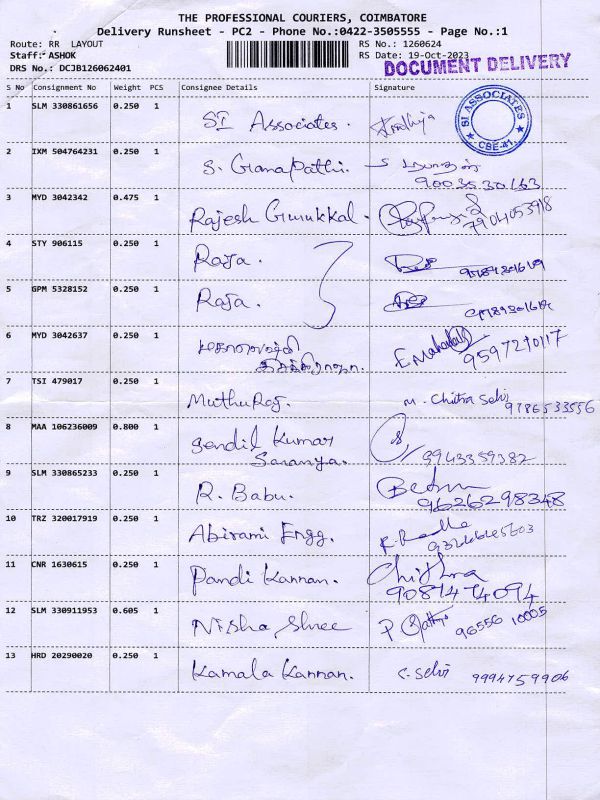 THE PROFESSIONAL COURIERS, COIMBATORE
Delivery Runsheet - PC2 - Phone No.:0422-3505555 - Page No.:1
Route: RR LAYOUT RS No.: 1260624
Staff: ASHOK RS Date: 19-Oct-2023
DRS No.: DCJB126062401 DOCUMENT DELIVERY
S No Consignment No Weight PCS Consignee Details Signature
1 SLM 330861656 0.250 1 SI Associates. SI ASSOCIATES CBE-41.
2 IXM 504764231 0.250 1 S. GanaPathi.
9003530163
3 MYD 3042342 0.475 1 Rajesh Gurukkal. 7904053918
4 STY 906115 0.250 1 Raja.
5 GPM 5328152 0.250 1 Raja.
6 MYD 3042637 0.250 1 9597210117
7 TSI 479017 0.250 1 MuthuRaj. M. Chitra Selvi 9786533556
8 MAA 106236009 0.800 1 Sendil Kumar
Saranya. 9943359382
9 SLM 330865233 0.250 1 R. Babu. 9626298348
10 TRZ 320017919 0.250 1 Abirami Engg.
11 CNR 1630615 0.250 1 Pandi Kannan. Chithra
9087474094
12 SLM 330911953 0.605 1 Nisha Shree 96556 10005
13 HRD 20290020 0.250 1 Kamala Kannan. C. Selvi 9994759906